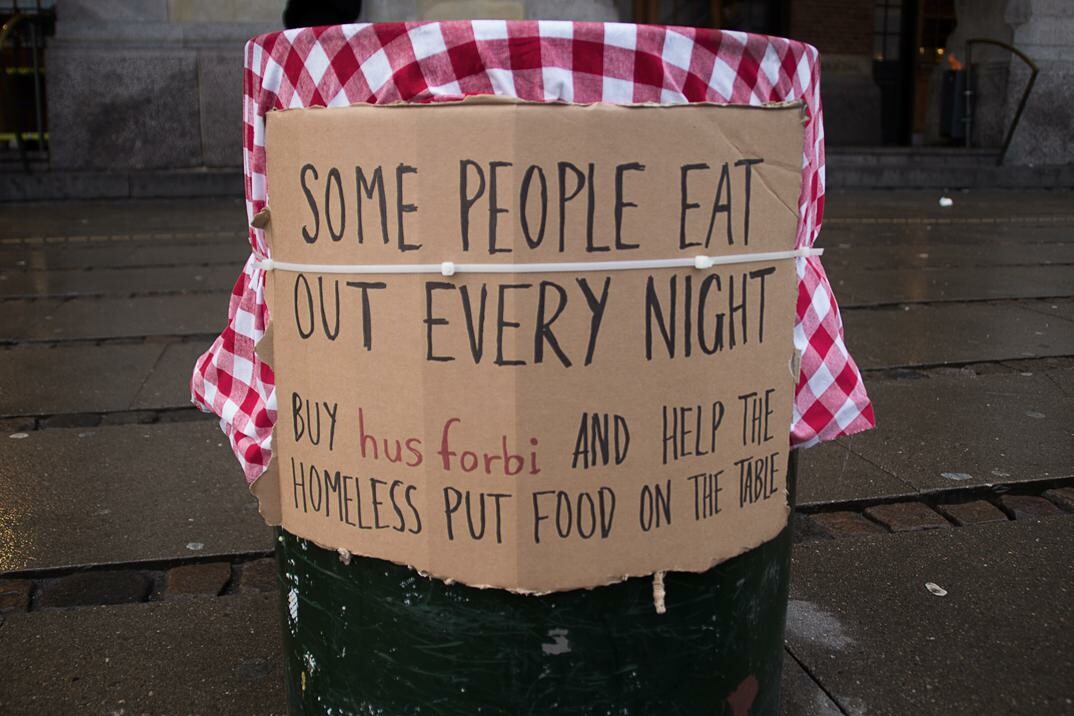 SOME PEOPLE EAT
OUT EVERY NIGHT
BUY hus forbi AND HELP THE
HOMELESS PUT FOOD ON THE TABLE